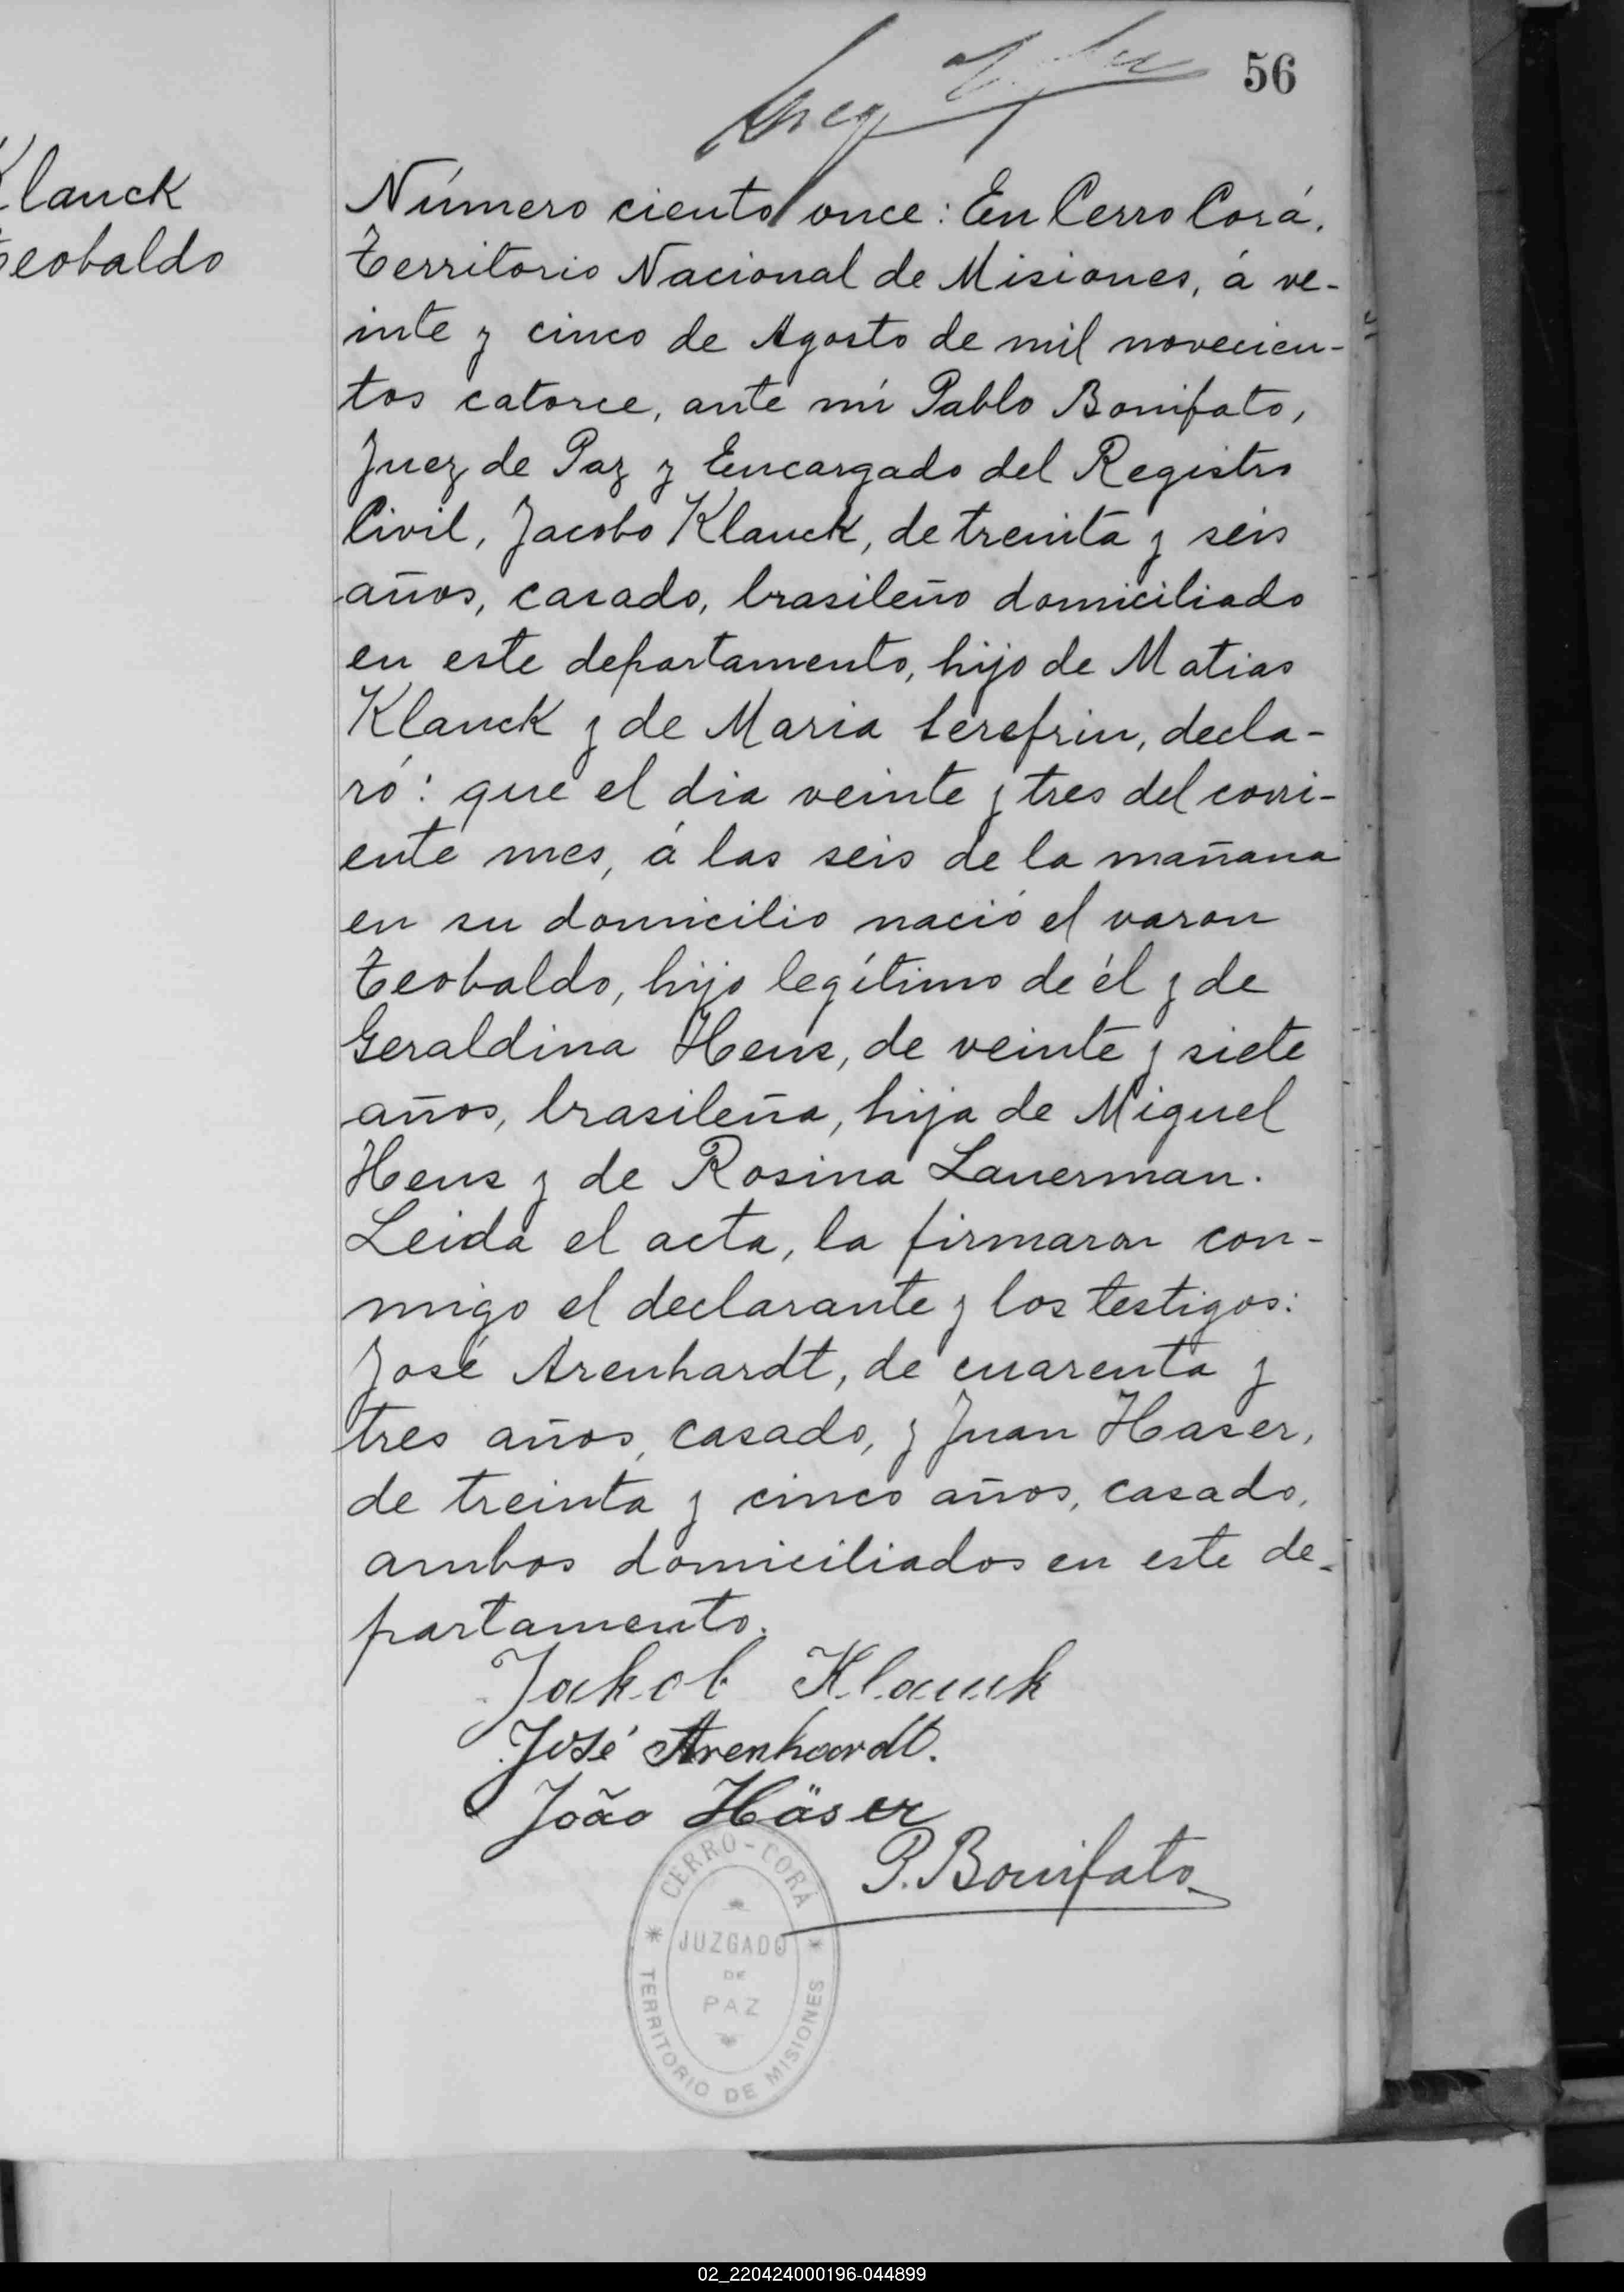 56
Klanck
Teobaldo
Número ciento once: En Cerro Corá,
Territorio Nacional de Misiones, á ve-
inte y cinco de Agosto de mil novecien-
tos catorce, ante mí Pablo Bonifato,
Juez de Paz y Encargado del Registro
Civil, Jacobo Klauck, de treinta y seis
años, casado, brasileño domiciliado
en este departamento, hijo de Matias
Klauck y de Maria Serefrin, decla-
ró: que el dia veinte y tres del corri-
ente mes, á las seis de la mañana
en su domicilio nació el varon
Teobaldo, hijo legítimo de él y de
Geraldina Hens, de veinte y siete
años, brasileña, hija de Miguel
Hens y de Rosina Lauerman.
Leida el acta, la firmaron con-
migo el declarante y los testigos:
José Arenhardt, de cuarenta y
tres años, casado, y Juan Haser,
de treinta y cinco años, casado,
ambos domiciliados en este de-
partamento.
Jakob Klauck
José Arenhardt.
João Häser
P. Bonifato
CERRO-CORÁ
JUZGADO
DE
PAZ
TERRITORIO DE MISIONES
02_220424000196-044899